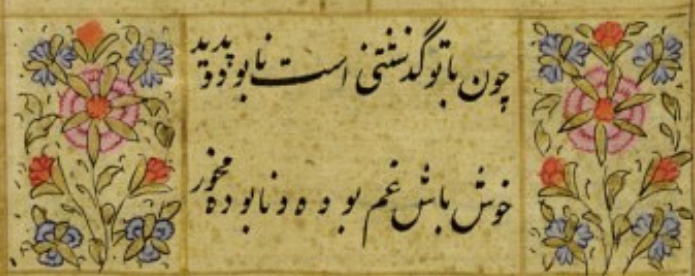 چون با تو گذشتنی است نابود و پدید
خوش باش غم بوده و نابوده مخور